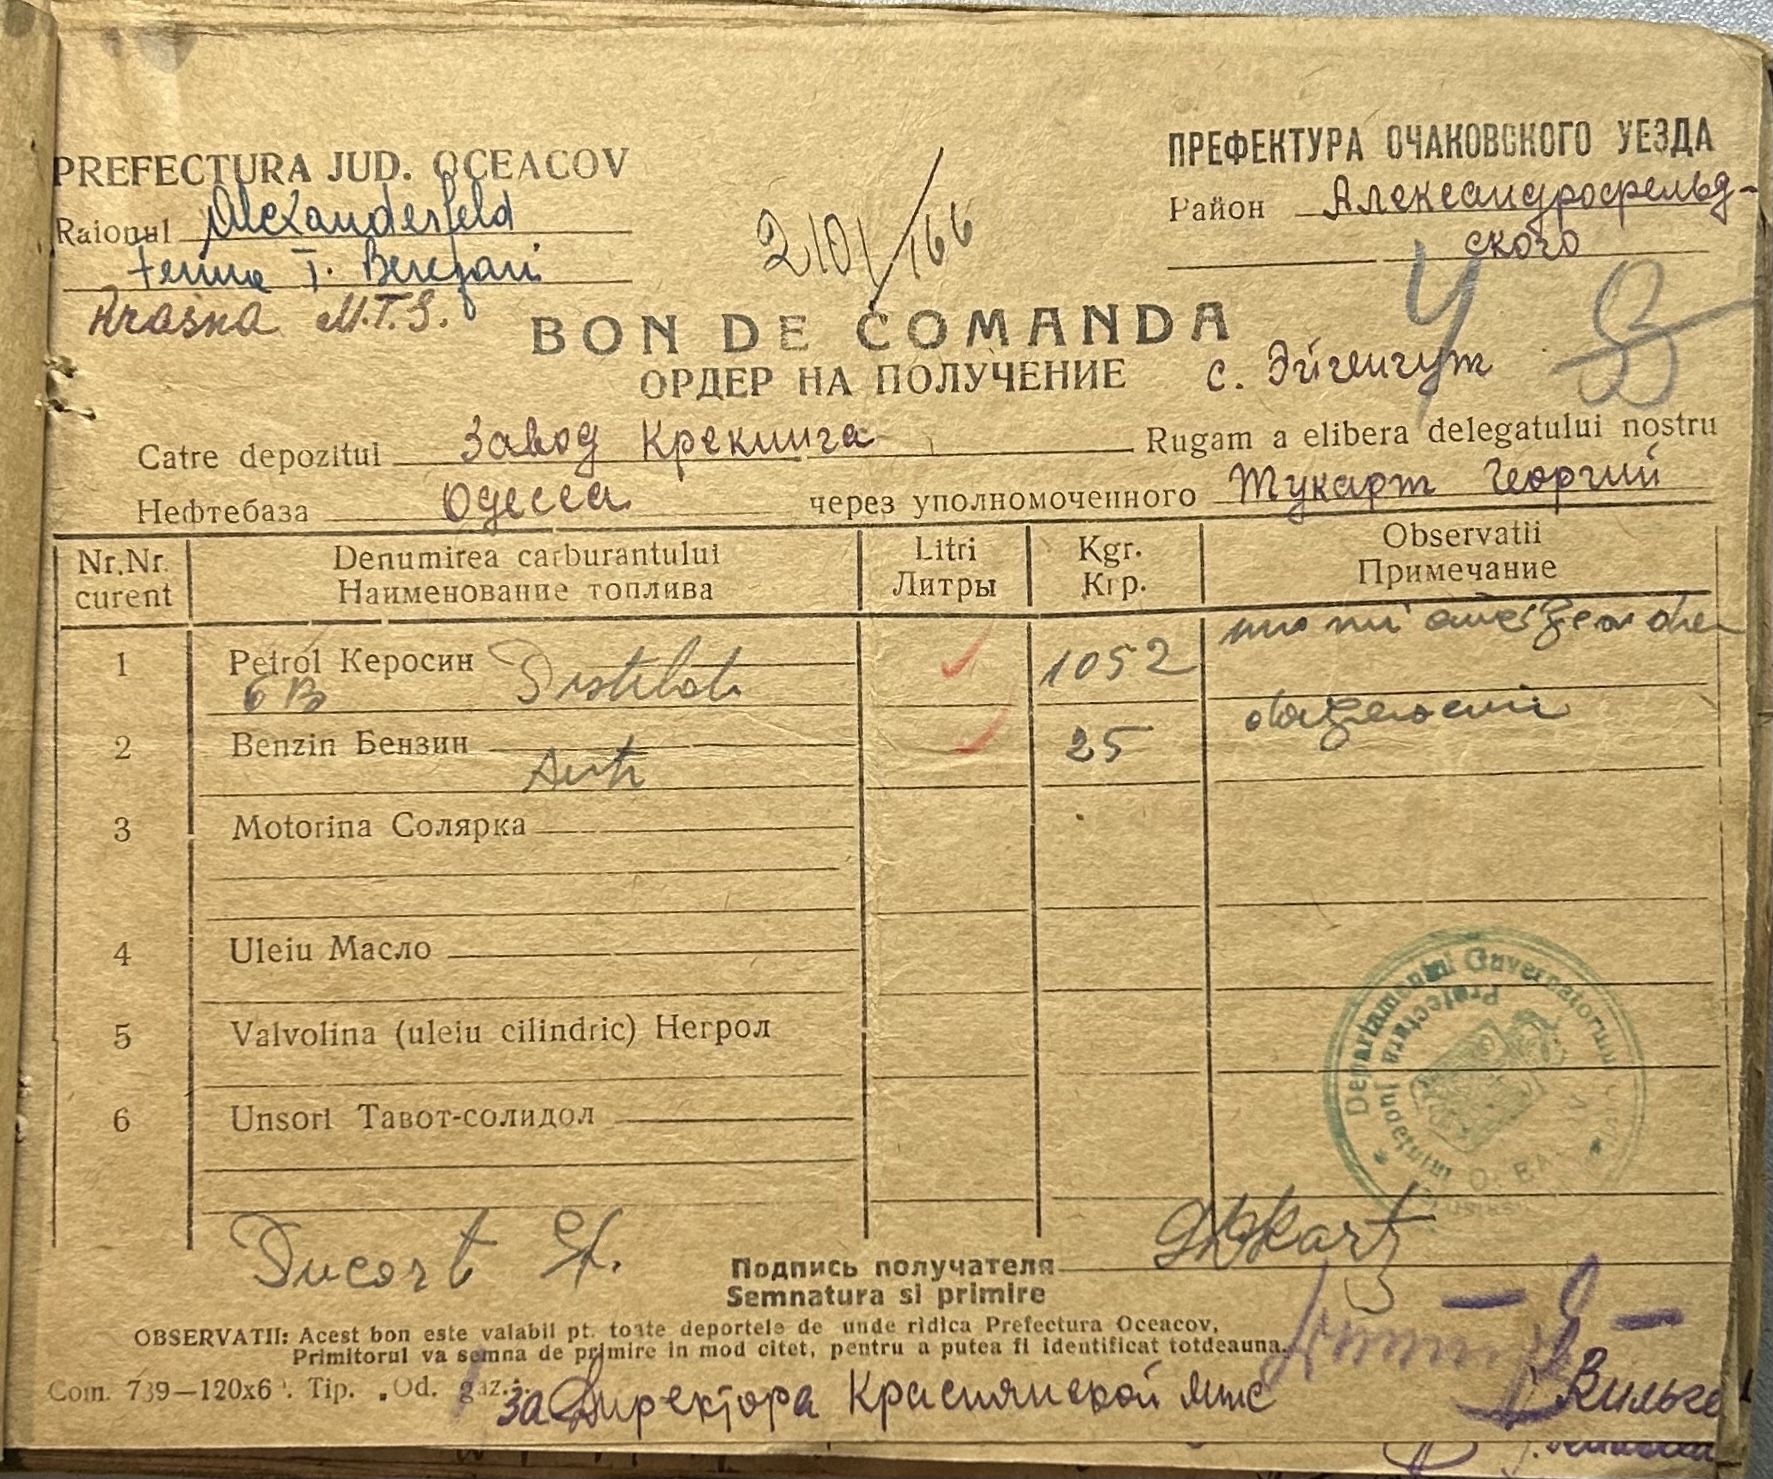 PREFECTURA JUD. OCEACOV
Raionul Alexanderfeld
Ferma T. Berezani
Krasna M.T.S.
2101/166
ПРЕФЕКТУРА ОЧАКОВСКОГО УЕЗДА
Район Александрофельд-
ского
BON DE COMANDA
ОРДЕР НА ПОЛУЧЕНИЕ с. Эйгенгут
Catre depozitul Завод Крекинга Rugam a elibera delegatului nostru
Нефтебаза Одесса через уполномоченного Тукарт Георгий
Nr.Nr. curent
Denumirea carburantului
Наименование топлива
Litri
Литры
Kgr.
Кгр.
Observatii
Примечание
1 Petrol Керосин Distilat 1052
2 Benzin Бензин 25
Auto
3 Motorina Солярка
4 Uleiu Масло
5 Valvolina (uleiu cilindric) Негрол
6 Unsori Тавот-солидол
Departamentul Guvernatorului
Prefectura Județului
Ducart
Подпись получателя
Semnatura si primire
OBSERVATII: Acest bon este valabil pt. toate deportele de unde ridica Prefectura Oceacov,
Primitorul va semna de primire in mod citet, pentru a putea fi identificat totdeauna.
Com. 739—120x6 Tip. „Od. gaz.
за Директора Краснянской мтс